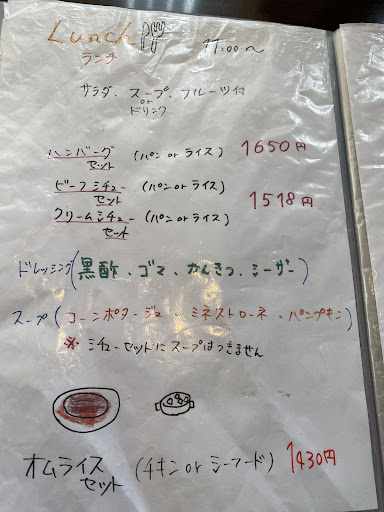 Lunch
ランチ
11:00〜
サラダ、スープ、フルーツ付
or
ドリンク
ハンバーグセット (パン or ライス) 1650円
ビーフシチューセット (パン or ライス) 1518円
クリームシチューセット (パン or ライス)
ドレッシング (黒酢、ゴマ、かんきつ、シーザー)
スープ (コーンポタージュ、ミネストローネ、パンプキン)
※ シチューセットにスープはつきません
オムライスセット (チキン or シーフード) 1430円